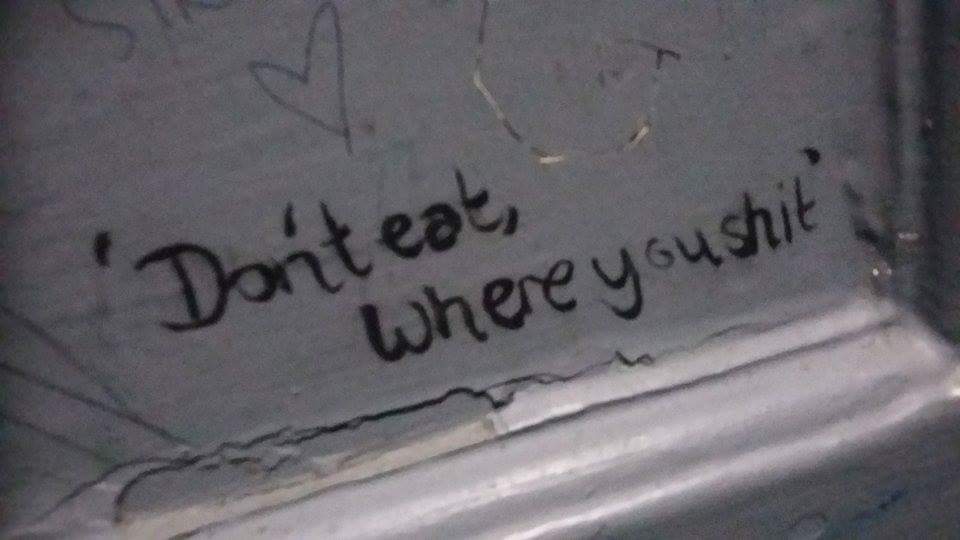 'Don't eat,
where you shit'